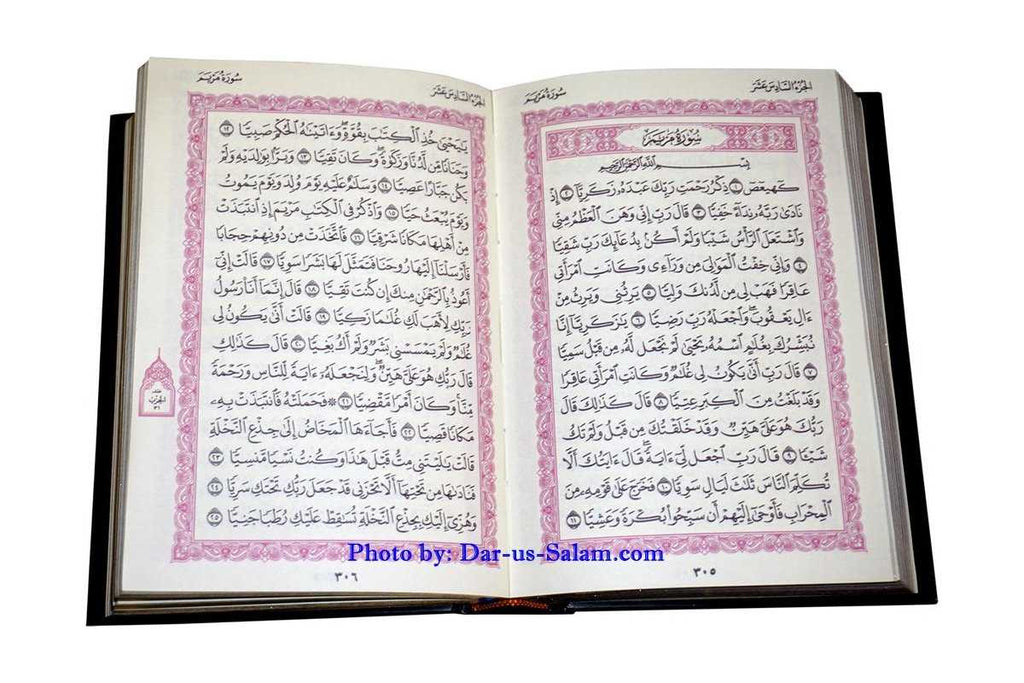 الجزء السادس عشر
سورة مريم
سُورَةُ مَرْيَمَ
بِسْمِ اللَّهِ الرَّحْمَٰنِ الرَّحِيمِ
كٓهيعٓصٓ ١ ذِكْرُ رَحْمَتِ رَبِّكَ عَبْدَهُۥ زَكَرِيَّآ ٢ إِذْ
نَادَىٰ رَبَّهُۥ نِدَآءً خَفِيًّا ٣ قَالَ رَبِّ إِنِّي وَهَنَ ٱلْعَظْمُ مِنِّي
وَٱشْتَعَلَ ٱلرَّأْسُ شَيْبًا وَلَمْ أَكُنۢ بِدُعَآئِكَ رَبِّ شَقِيًّا
٤ وَإِنِّي خِفْتُ ٱلْمَوَٰلِيَ مِن وَرَآءِي وَكَانَتِ ٱمْرَأَتِي
عَاقِرًا فَهَبْ لِي مِن لَّدُنكَ وَلِيًّا ٥ يَرِثُنِي وَيَرِثُ مِنْ
ءَالِ يَعْقُوبَ ۖ وَٱجْعَلْهُ رَبِّ رَضِيًّا ٦ يَٰزَكَرِيَّآ إِنَّا
نُبَشِّرُكَ بِغُلَٰمٍ ٱسْمُهُۥ يَحْيَىٰ لَمْ نَجْعَل لَّهُۥ مِن قَبْلُ سَمِيًّا
٧ قَالَ رَبِّ أَنَّىٰ يَكُونُ لِي غُلَٰمٌ وَكَانَتِ ٱمْرَأَتِي عَاقِرًا
وَقَدْ بَلَغْتُ مِنَ ٱلْكِبَرِ عِتِيًّا ٨ قَالَ كَذَٰلِكَ قَالَ
رَبُّكَ هُوَ عَلَيَّ هَيِّنٌ وَقَدْ خَلَقْتُكَ مِن قَبْلُ وَلَمْ تَكُ
شَيْـًٔا ٩ قَالَ رَبِّ ٱجْعَل لِّيٓ ءَايَةً ۚ قَالَ ءَايَتُكَ أَلَّا
تُكَلِّمَ ٱلنَّاسَ ثَلَٰثَ لَيَالٍ سَوِيًّا ١٠ فَخَرَجَ عَلَىٰ قَوْمِهِۦ مِنَ
ٱلْمِحْرَابِ فَأَوْحَىٰٓ إِلَيْهِمْ أَن سَبِّحُوا۟ بُكْرَةً وَعَشِيًّا ١١
٣٠٥
الجزء السادس عشر
سورة مريم
يَٰيَحْيَىٰ خُذِ ٱلْكِتَٰبَ بِقُوَّةٍ ۖ وَءَاتَيْنَٰهُ ٱلْحُكْمَ صَبِيًّا ١٢
وَحَنَانًا مِّن لَّدُنَّا وَزَكَوٰةً ۖ وَكَانَ تَقِيًّا ١٣ وَبَرًّۢا بِوَٰلِدَيْهِ وَلَمْ
يَكُن جَبَّارًا عَصِيًّا ١٤ وَسَلَٰمٌ عَلَيْهِ يَوْمَ وُلِدَ وَيَوْمَ يَمُوتُ
وَيَوْمَ يُبْعَثُ حَيًّا ١٥ وَٱذْكُرْ فِي ٱلْكِتَٰبِ مَرْيَمَ إِذِ ٱنتَبَذَتْ
مِنْ أَهْلِهَا مَكَانًا شَرْقِيًّا ١٦ فَٱتَّخَذَتْ مِن دُونِهِمْ حِجَابًا
فَأَرْسَلْنَآ إِلَيْهَا رُوحَنَا فَتَمَثَّلَ لَهَا بَشَرًا سَوِيًّا ١٧ قَالَتْ إِنِّيٓ
أَعُوذُ بِٱلرَّحْمَٰنِ مِنكَ إِن كُنتَ تَقِيًّا ١٨ قَالَ إِنَّمَآ أَنَا۠ رَسُولُ
رَبِّكِ لِأَهَبَ لَكِ غُلَٰمًا زَكِيًّا ١٩ قَالَتْ أَنَّىٰ يَكُونُ لِي
غُلَٰمٌ وَلَمْ يَمْسَسْنِي بَشَرٌ وَلَمْ أَكُ بَغِيًّا ٢٠ قَالَ كَذَٰلِكِ
قَالَ رَبُّكِ هُوَ عَلَيَّ هَيِّنٌ ۖ وَلِنَجْعَلَهُۥٓ ءَايَةً لِّلنَّاسِ وَرَحْمَةً
مِّنَّا ۚ وَكَانَ أَمْرًا مَّقْضِيًّا ٢١ ۞ فَحَمَلَتْهُ فَٱنتَبَذَتْ بِهِۦ
مَكَانًا قَصِيًّا ٢٢ فَأَجَآءَهَا ٱلْمَخَاضُ إِلَىٰ جِذْعِ ٱلنَّخْلَةِ
قَالَتْ يَٰلَيْتَنِي مِتُّ قَبْلَ هَٰذَا وَكُنتُ نَسْيًا مَّنسِيًّا ٢٣
فَنَادَىٰهَا مِن تَحْتِهَآ أَلَّا تَحْزَنِي قَدْ جَعَلَ رَبُّكِ تَحْتَكِ سَرِيًّا ٢٤
وَهُزِّيٓ إِلَيْكِ بِجِذْعِ ٱلنَّخْلَةِ تُسَٰقِطْ عَلَيْكِ رُطَبًا جَنِيًّا ٢٥
الحزب
٣١
٣٠٦
Photo by: Dar-us-Salam.com